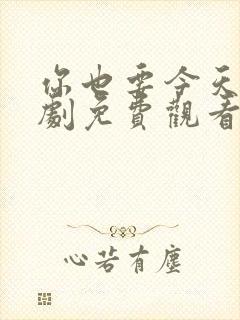 你也要今天
劇免費觀看
心若有塵